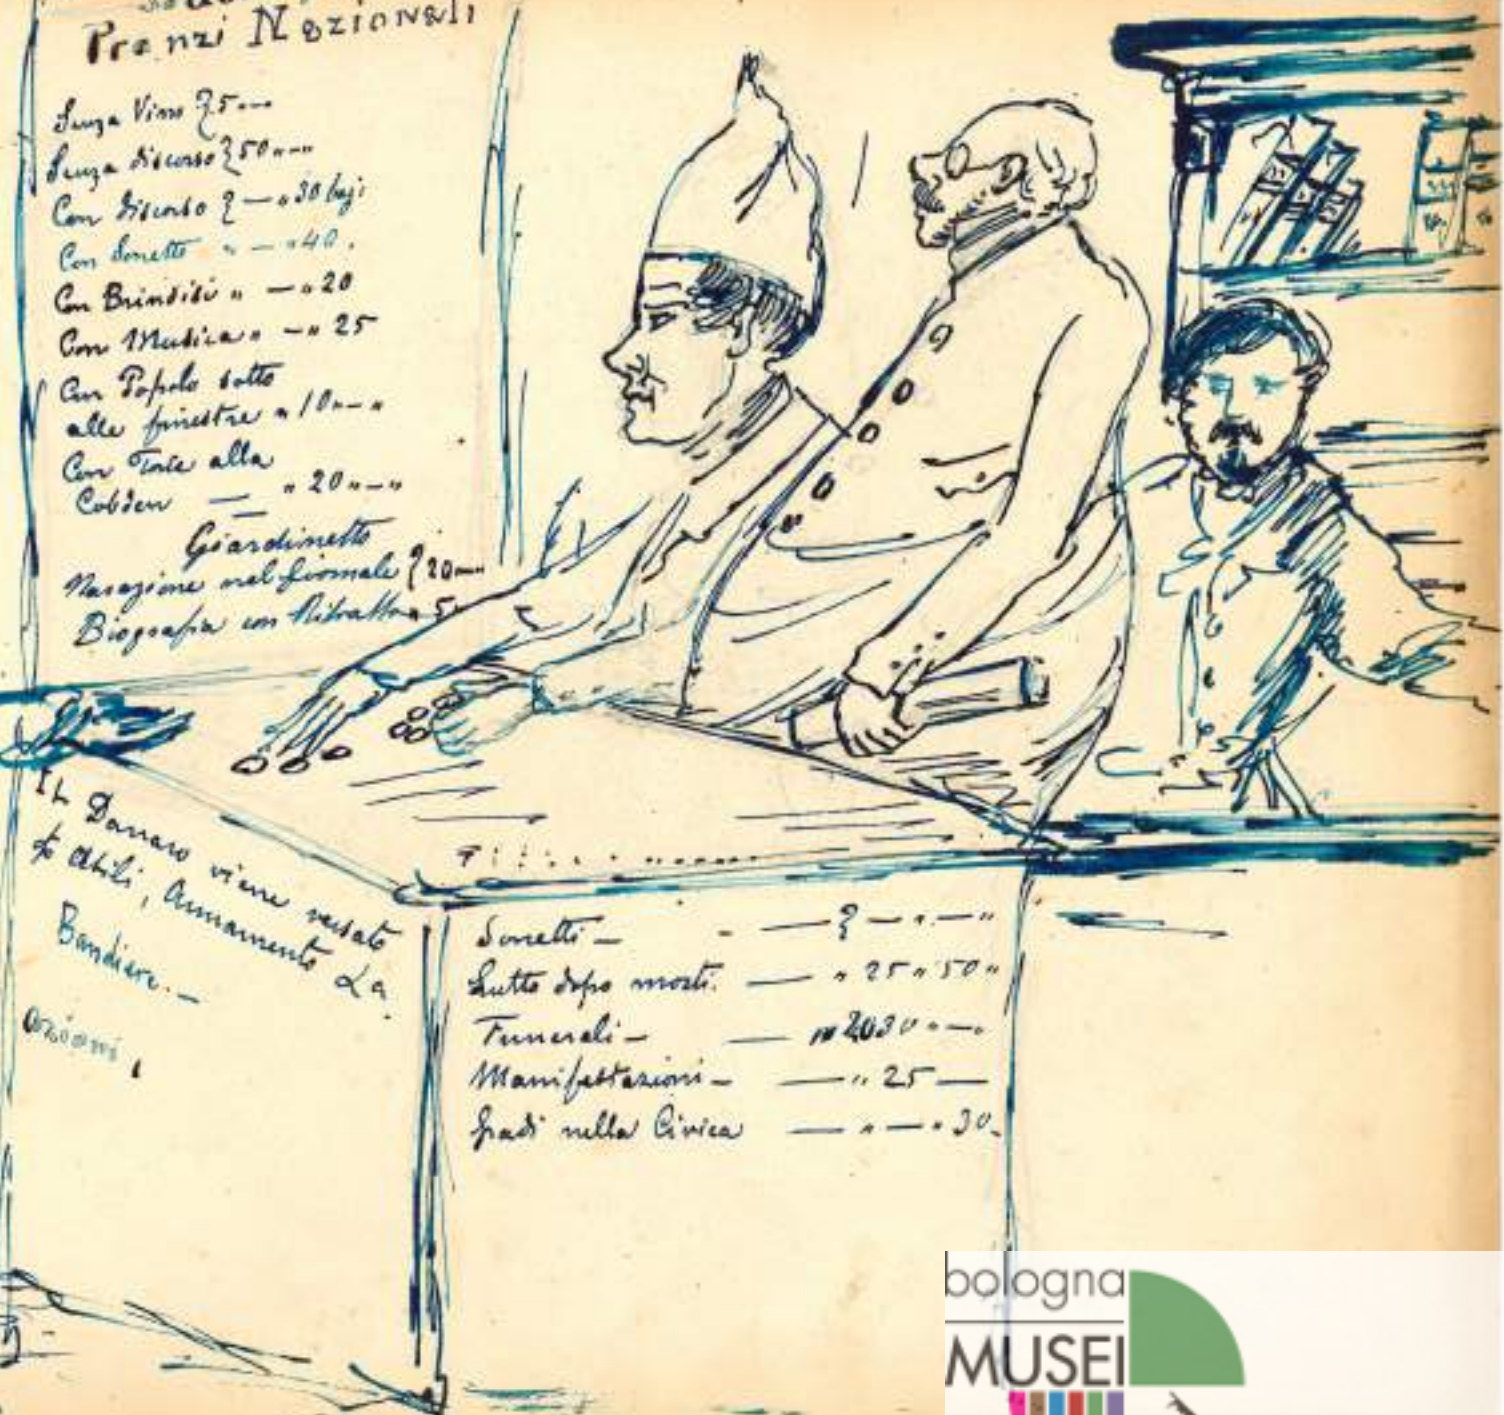 Pranzi Nazionali
Senza Vino } 5 —
Senza discorso } 50 " — "
Con discorso } — " 30 baj:
Con Sonetto " — " 40 .
Con Brindisi " — " 20
Con Musica " — " 25
Con Popolo sotto
alle finestre " 10 " — "
Con Torte alla
Cobden — " 20 " — "
Giardinetto
Narazione nel Giornale } 20 —
Biografia con Ritratto " 5
Il Danaro viene versato
Abili, Armamento La
Bandiere. —
azioni,
Sonetti — - — } — " — "
Lutto dopo morti. — " 25 " 50 "
Funerali — — " 2030 " — .
Manifestazioni — — " 25 —
Gradi nella Civica — " — " 30.
bologna
MUSEI